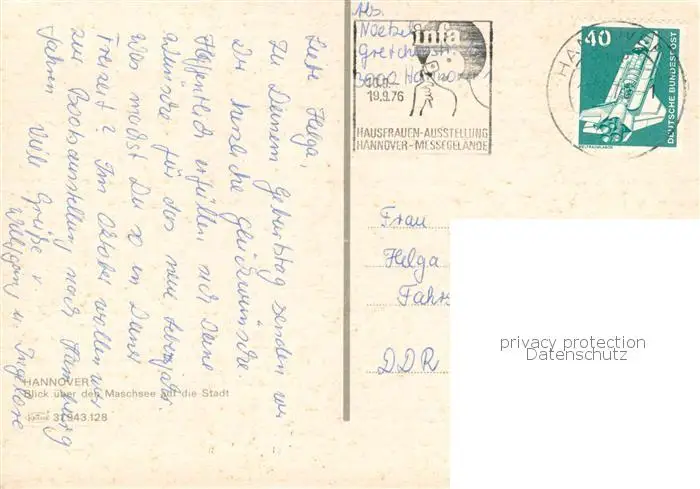 Liebe Helga,
Zu Deinem Geburtstag senden wir
Dir herzliche Glückwünsche.
Hoffentlich erfüllen sich Deine
Wünsche für das neue Lebensjahr.
Was machst Du so in Deiner
Freizeit? Im Oktober wollen wir
zur Bootsausstellung nach Hamburg
fahren. Viele Grüße v.
Wolfgang u. Ingelore
HANNOVER
Blick über den Maschsee auf die Stadt
37943.128
Abs.
Noetzel
Gretchenstr.
3000 Hannover 1
infa
19.9.76
HAUSFRAUEN-AUSSTELLUNG
HANNOVER-MESSEGELÄNDE
40
DEUTSCHE BUNDESPOST
WELTRAUMLABOR
Frau
Helga
DDR
privacy protection
Datenschutz